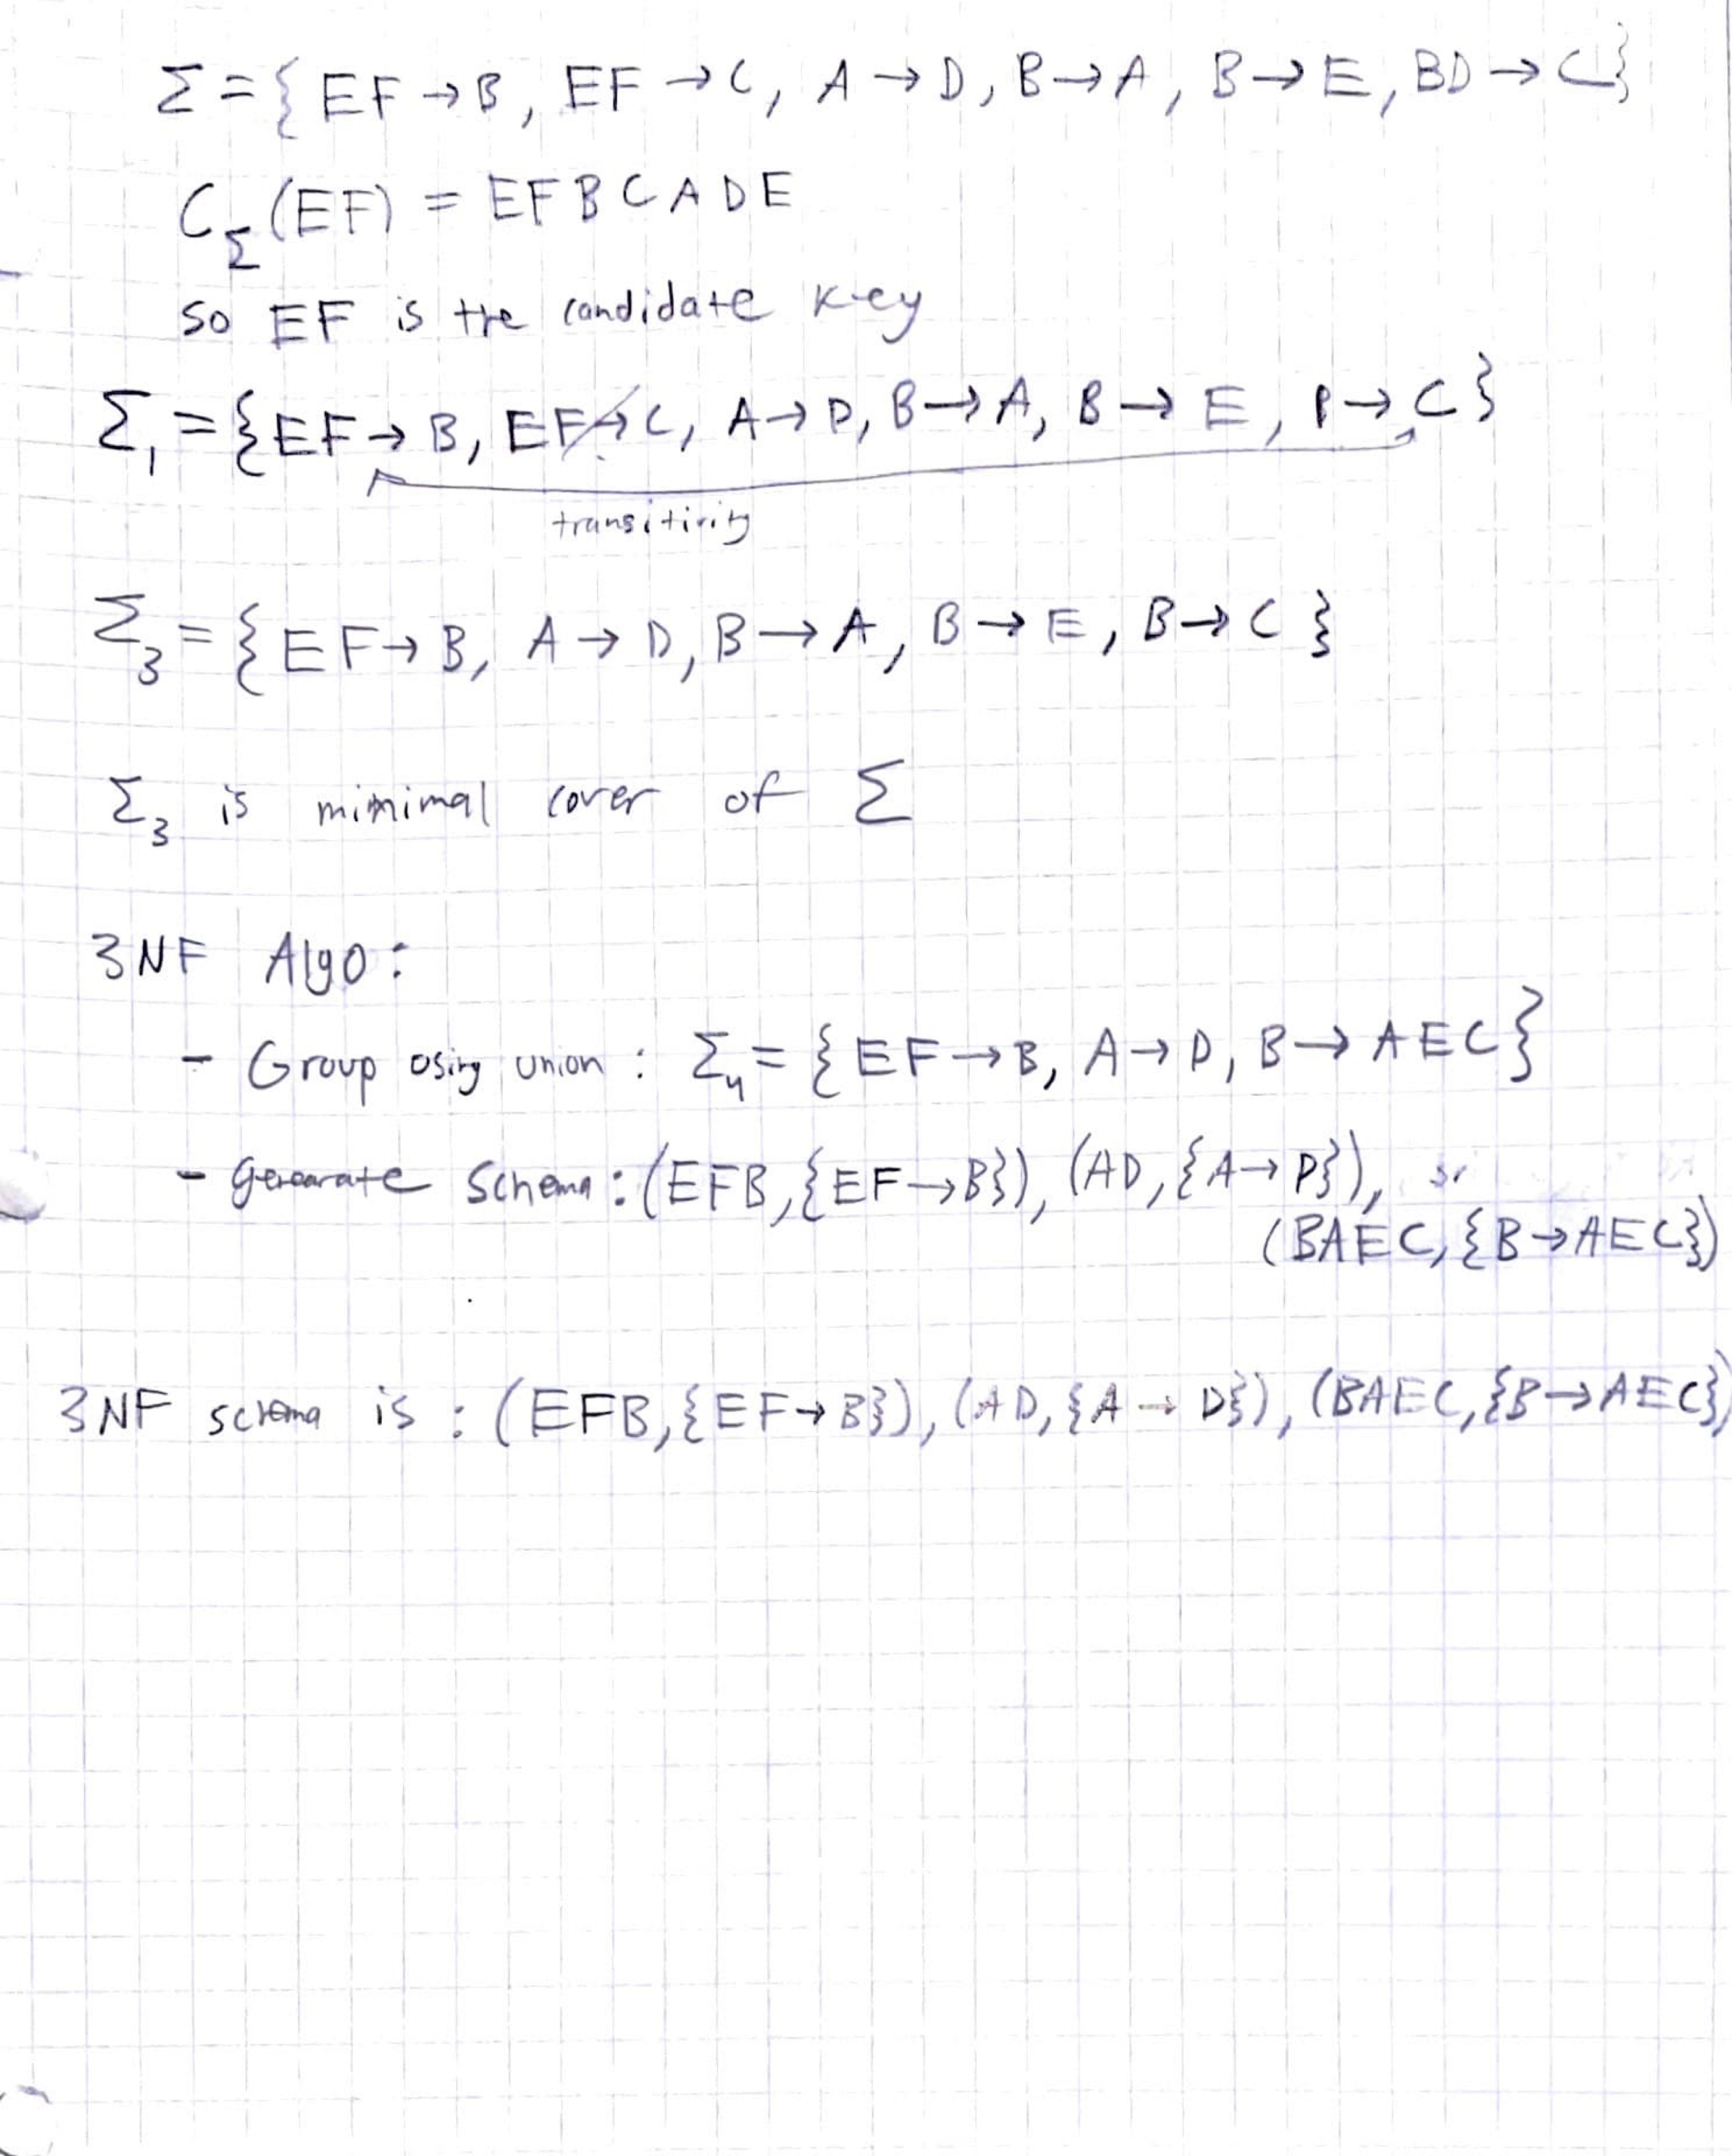 Σ = { EF → B, EF → C, A → D, B → A, B → E, BD → C}
C_Σ (EF) = EFBCADE
so EF is the candidate key
Σ₁ = {EF → B, EF → C, A → D, B → A, B → E, B → C}
transitivity
Σ₃ = { EF → B, A → D, B → A, B → E, B → C }
Σ₃ is minimal cover of Σ
3NF Algo:
- Group using union : Σ₄ = { EF → B, A → D, B → AEC}
- generate schema : (EFB, {EF → B}), (AD, {A → D}),
(BAEC, {B → AEC})
3NF schema is : (EFB, {EF → B}), (AD, {A → D}), (BAEC, {B → AEC})